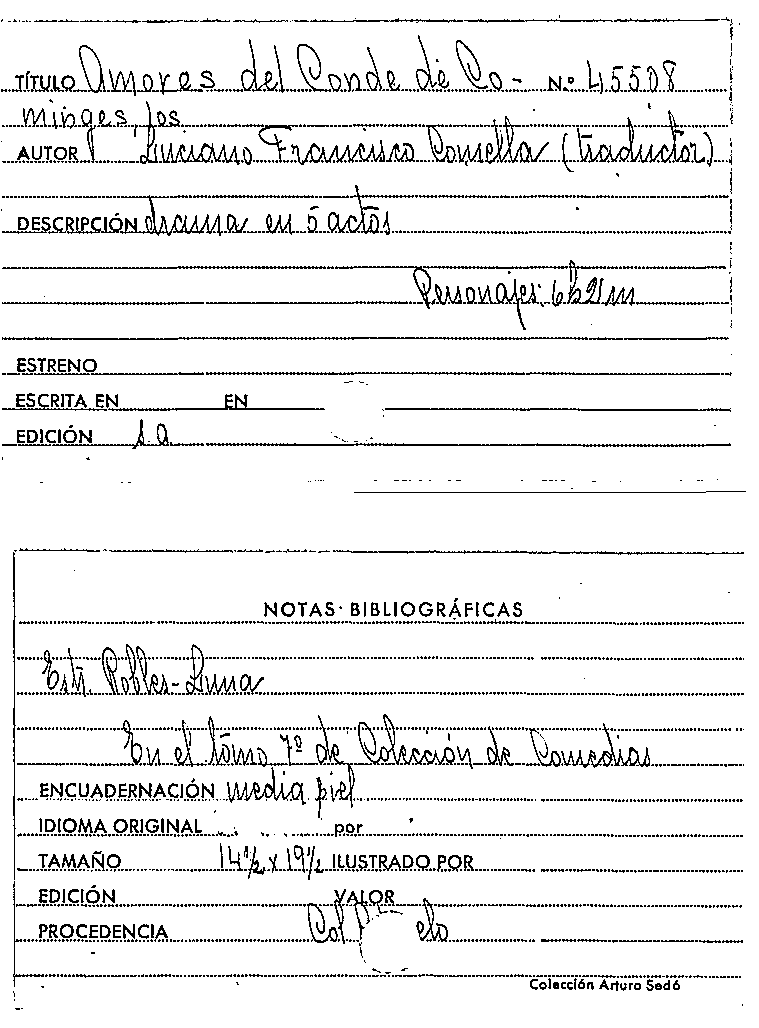 TÍTULO Amores del Conde de Co- N.º 45508
minges, los
AUTOR Luciano Francisco Comella (traductor)
DESCRIPCIÓN drama en 5 actos
Personajes: 6h 2m
ESTRENO
ESCRITA EN EN
EDICIÓN s.a.
NOTAS BIBLIOGRÁFICAS
Estr. Robles-Luna
En el tomo 7º de Colección de Comedias
ENCUADERNACIÓN media piel
IDIOMA ORIGINAL por
TAMAÑO 14½ x 19½ ILUSTRADO POR
EDICIÓN VALOR
PROCEDENCIA Col
Colección Arturo Sedó